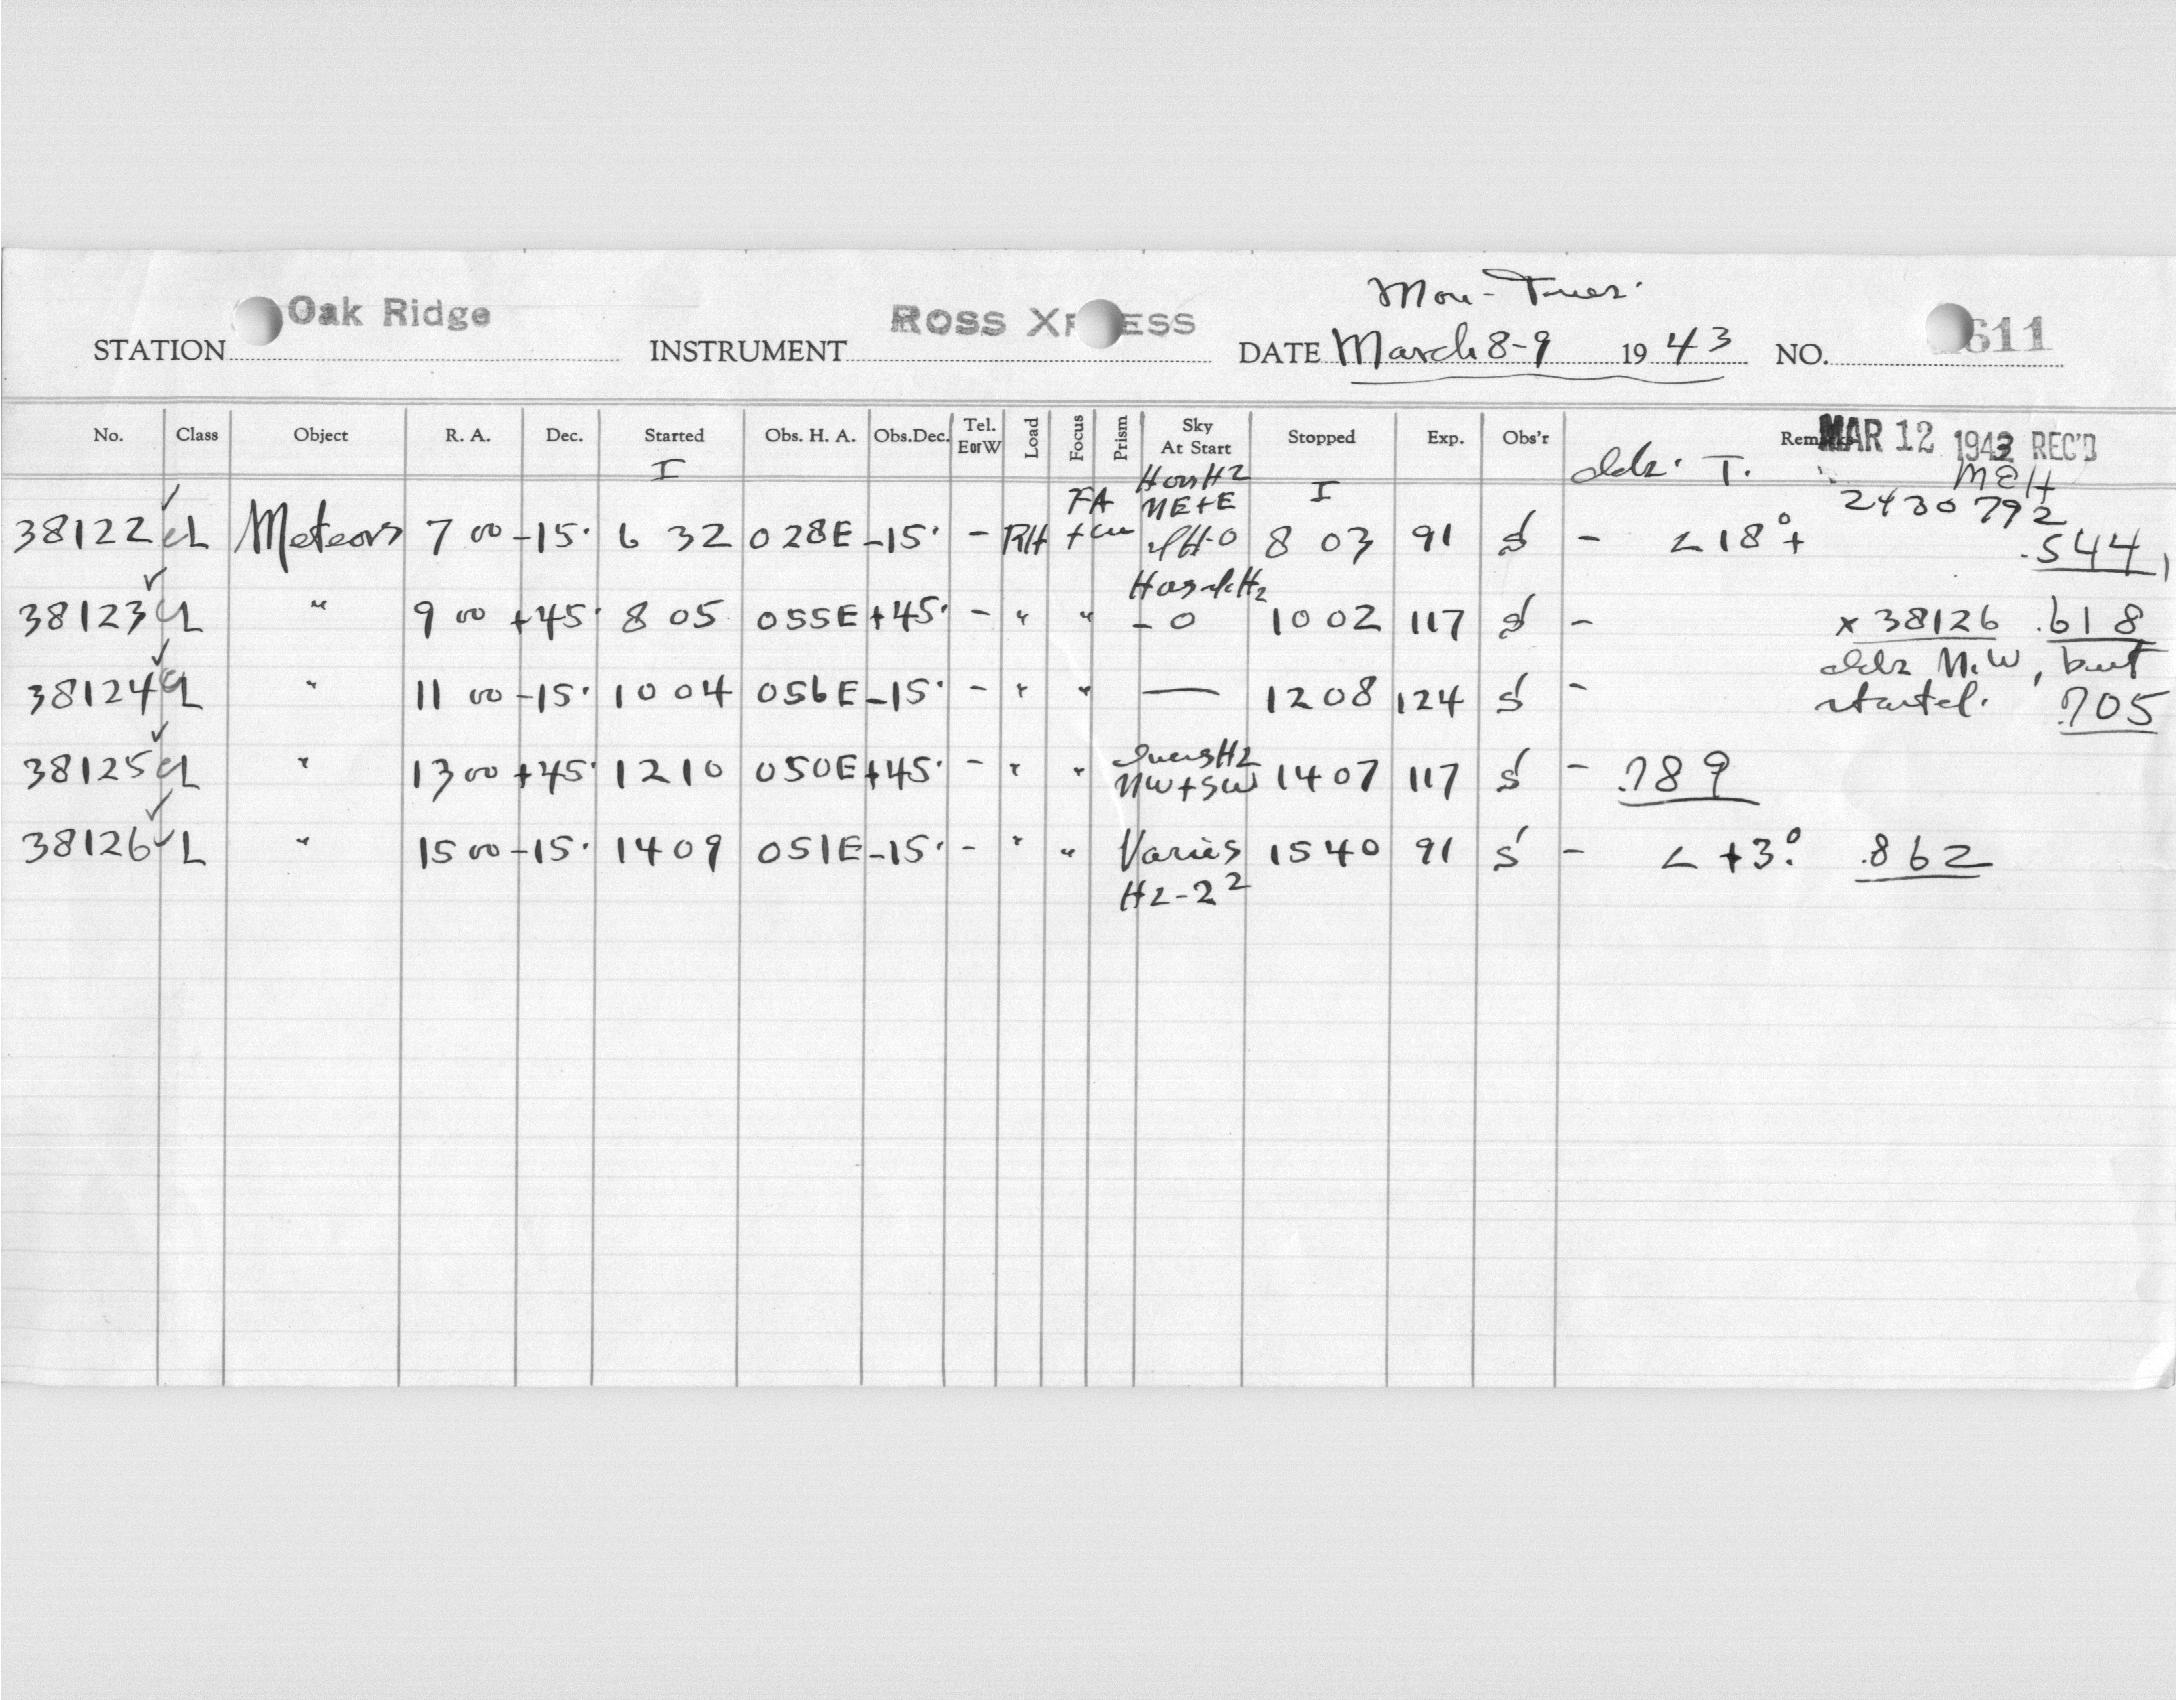 Mon - Tues.
STATION Oak Ridge INSTRUMENT ROSS X ESS DATE March 8-9 1943 NO. 611
No. Class Object R. A. Dec. Started Obs. H. A. Obs.Dec. Tel. E or W Load Focus Prism Sky At Start Stopped Exp. Obs'r Remarks MAR 12 1943 REC'D
I I T. MEH
2430 792
38122 L Meteors 7 00 -15° 6 32 028E -15° - RH FA NE+E 8 03 91 S - < 18°+ .544
38123 L " 9 00 +45° 8 05 055E +45° - " " - 0 10 02 117 S - x 38126 .618
N.W, but
38124 L " 11 00 -15° 10 04 056E -15° - " " — 12 08 124 S - started. .705
38125 L " 13 00 +45° 12 10 050E +45° - " " NW+SW 14 07 117 S - .789
38126 L " 15 00 -15° 14 09 051E -15° - " " Varies 15 40 91 S - < +3° .862
H2-2²